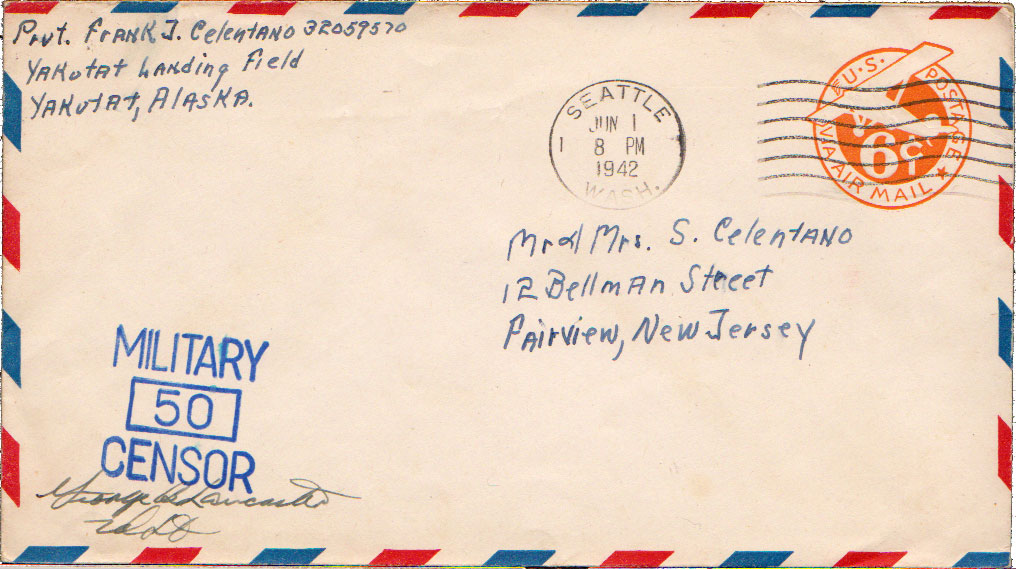 Prvt. Frank J. Celentano 32059570
Yakutat Landing Field
Yakutat, Alaska.
SEATTLE
JUN 1
1 8 PM
1942
WASH.
U.S. POSTAGE
6¢
VIA AIR MAIL
Mr & Mrs. S. Celentano
12 Bellman Street
Fairview, New Jersey
MILITARY
50
CENSOR
George Lancaster